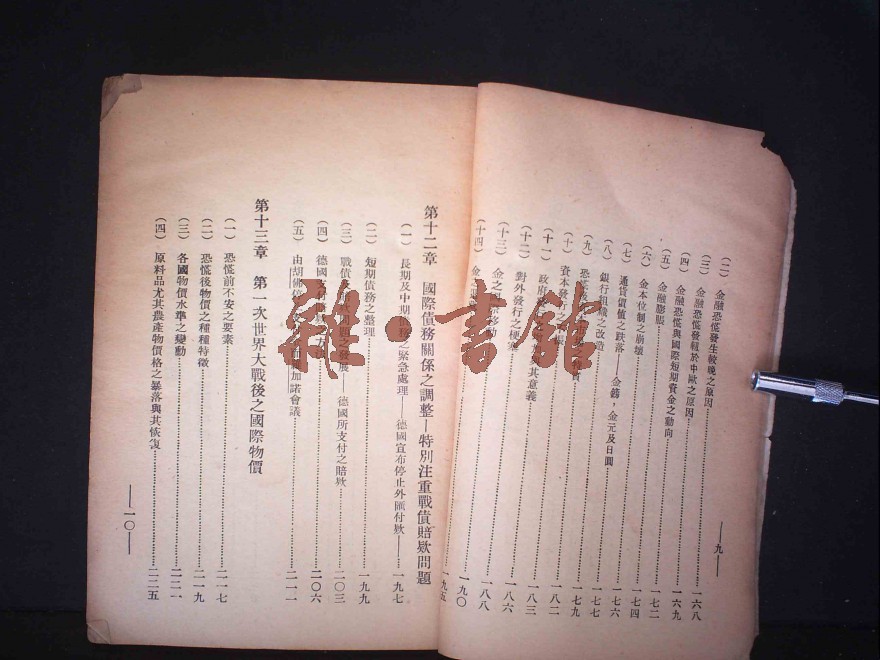 （二） 金融恐慌發生較晚之原因……一六八
（三） 金融恐慌發軔於中歐之原因
（四） 金融恐慌與國際短期資金之動向……一六九
（五） 金融膨脹……一七二
（六） 金本位制之崩壞……一七四
（七） 通貨價值之跌落——金鎊，金元及日圓……一七六
（八） 銀行組織之改造……一七七
（九） 恐慌……一七九
（十） 資本發行之……一八二
（十一） 政府……其意義……一八三
（十二） 對外發行之梗塞……一八六
（十三） 金之國際移動……一八八
（十四） 金之……一九〇
——九——
第十二章 國際債務關係之調整——特別注重戰債賠款問題……一九五
（一） 長期及中期債務之緊急處理——德國宣布停止外匯付款——……一九七
（二） 短期債務之整理……一九九
（三） 戰債及……問題之發展——德國所支付之賠款……二〇三
（四） 德國支付……方法……二〇六
（五） 由胡佛停……加諾會議……二一一
第十三章 第一次世界大戰後之國際物價
（一） 恐慌前不安之要素……二一七
（二） 恐慌後物價之種種特徵……二一九
（三） 各國物價水準之變動……二二一
（四） 原料品尤其農產物價格之暴落與其恢復……二二五
——一〇——
雜·書館